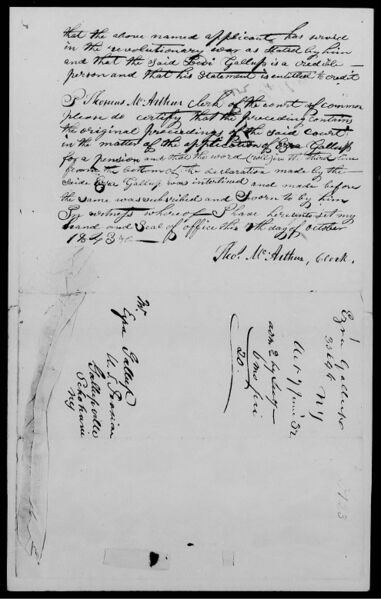 that the above named applicant has served
in the revolutionary war as stated by him
and that the said Gallup is a credible
person and that his statement is entitled to credit
I Thomas McArthur clerk of the court of common
pleas do certify that the preceding contains
the original proceedings of the said court
in the matter of the application of Ezra Gallup
for a pension and that the word in the third line
from the bottom of the declaration made by the
said Ezra Gallup was interlined and made before
the same was subscribed and sworn to by him
In witness whereof I have hereunto set my
hand and Seal of office this day of October
Thos. McArthur, Clerk.
Ezra Gallup
N Y
Act 7 June 32
6 mos
20
Mr
Ezra Gallup
U.S. Pension
Gallupville
Schoharie
NY